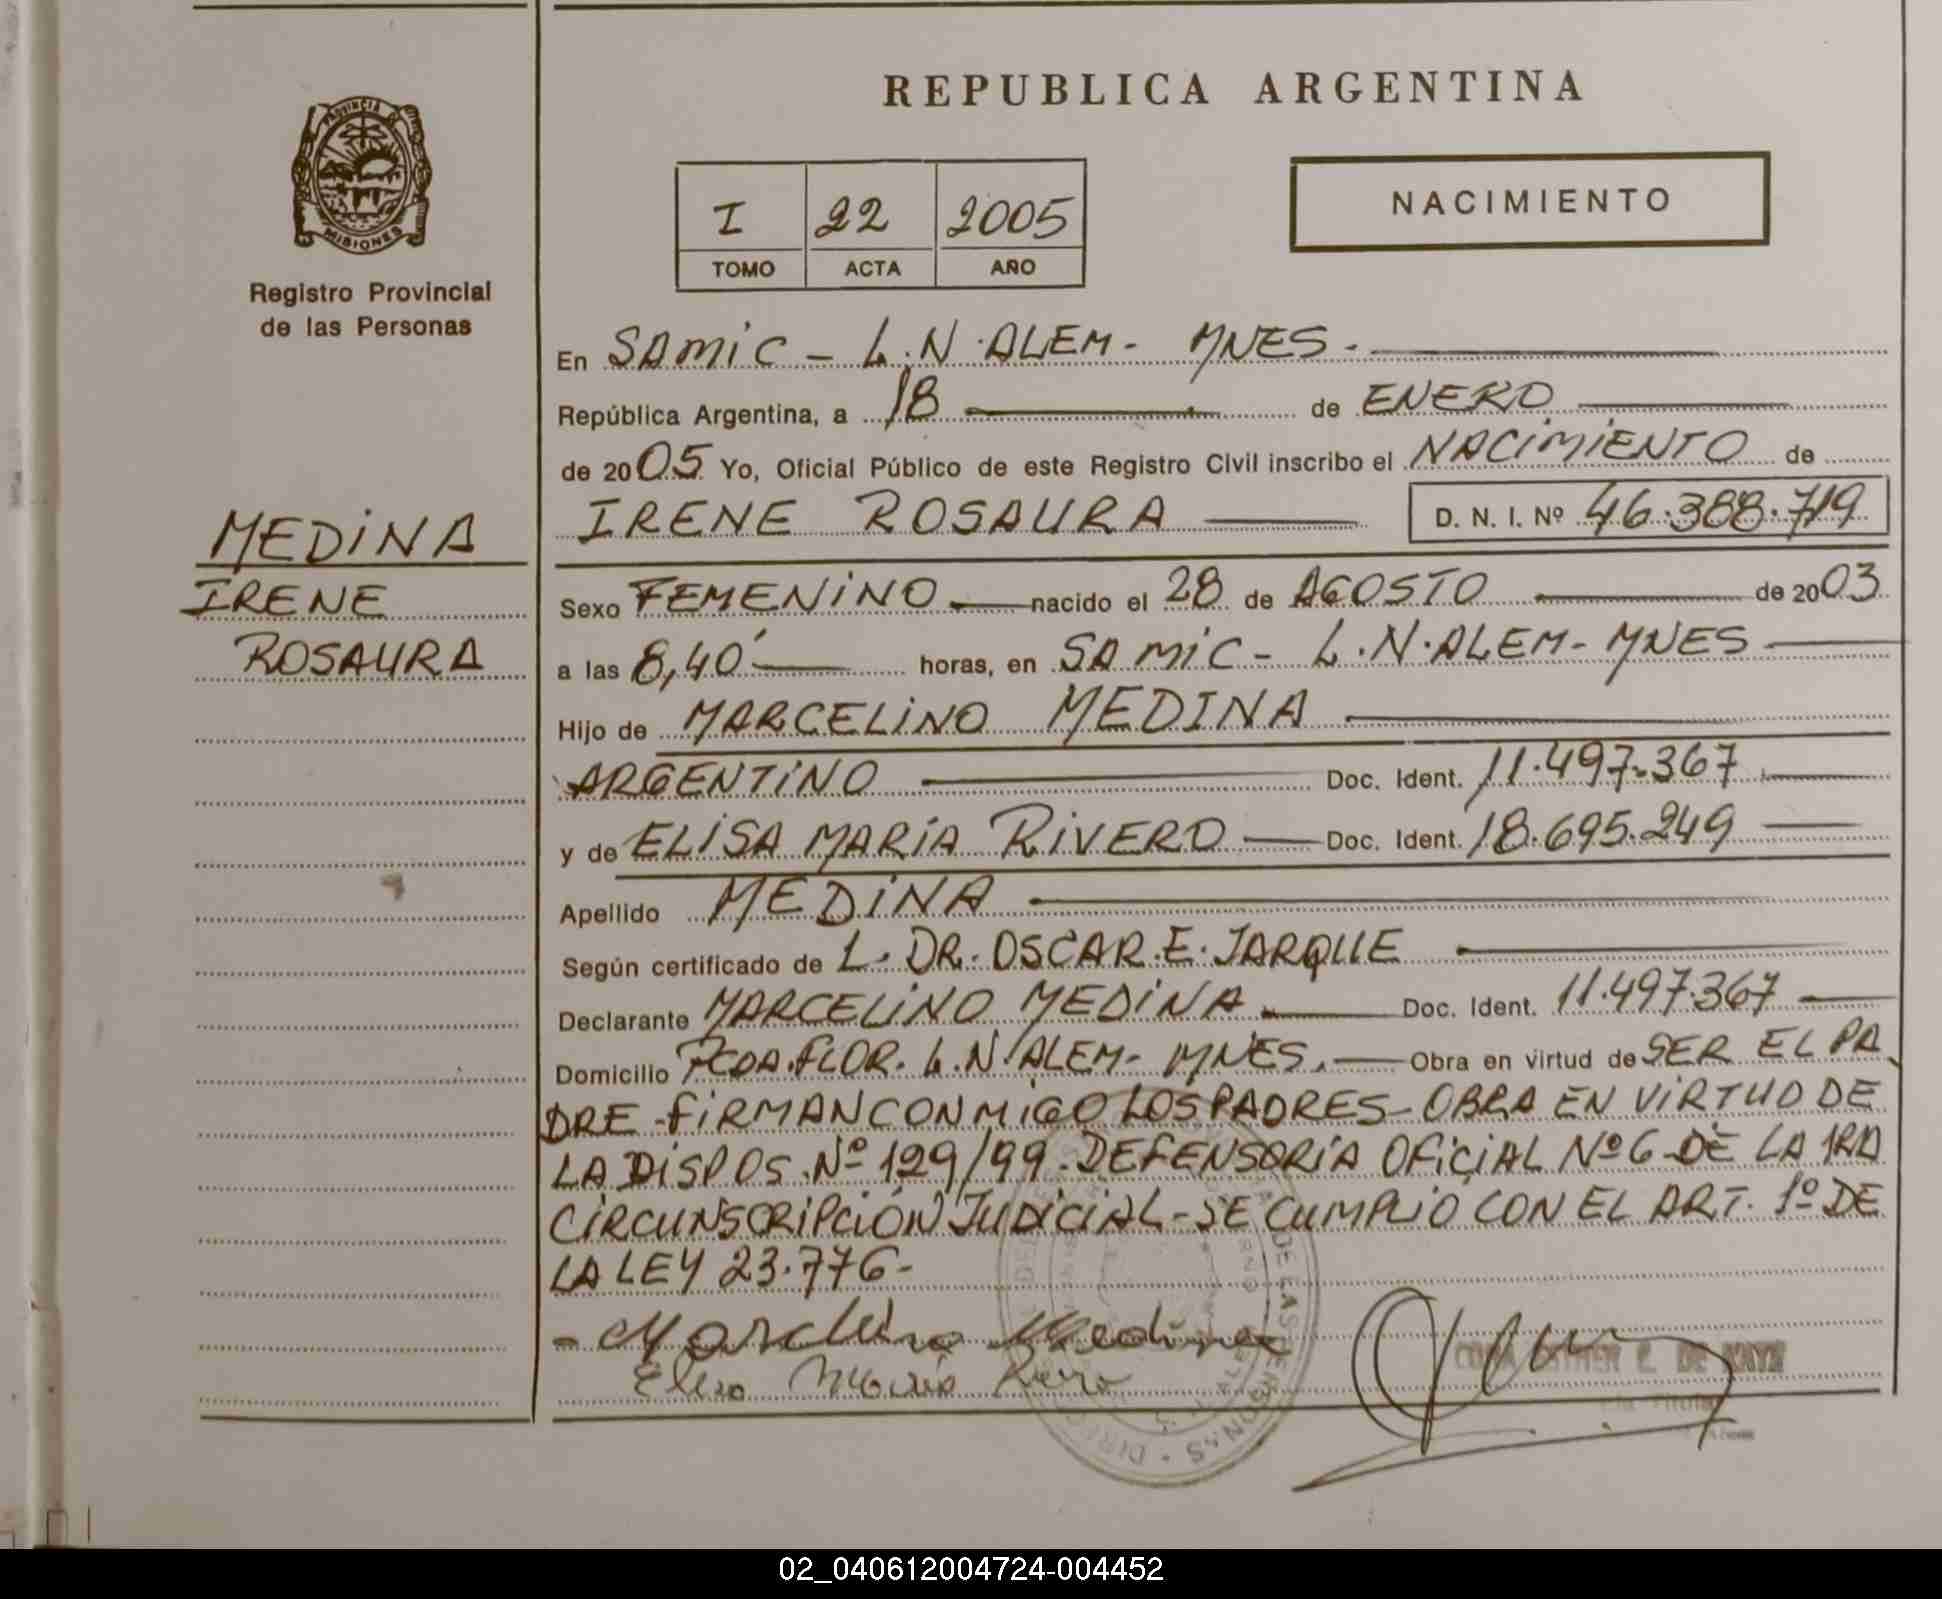 REPUBLICA ARGENTINA
PROVINCIA DE
MISIONES
Registro Provincial
de las Personas
I 22 2005
TOMO ACTA AÑO
NACIMIENTO
MEDINA
IRENE
ROSAURA
En SAMIC - L.N.ALEM - MNES.
República Argentina, a 18 de ENERO
de 2005 Yo, Oficial Público de este Registro Civil inscribo el NACIMIENTO de
IRENE ROSAURA D. N. I. Nº 46.388.719
Sexo FEMENINO nacido el 28 de AGOSTO de 2003
a las 8,40' horas, en SAMIC - L.N.ALEM - MNES
Hijo de MARCELINO MEDINA
ARGENTINO Doc. Ident. 11.497.367
y de ELISA MARIA RIVERO Doc. Ident. 18.695.249
Apellido MEDINA
Según certificado de L. DR. OSCAR.E. JARQUE
Declarante MARCELINO MEDINA Doc. Ident. 11.497.367
Domicilio PCDA.FLOR. L.N.ALEM - MNES. Obra en virtud de SER EL PA
DRE - FIRMAN CONMIGO LOS PADRES - OBRA EN VIRTUD DE
LA DISPOS. Nº 129/99. DEFENSORIA OFICIAL Nº 6 DE LA 1RA
CIRCUNSCRIPCIÓN JUDICIAL - SE CUMPLIÓ CON EL ART. 1º DE
LA LEY 23.776 -
Marcelino Medina
Elisa Maria Rivero
ESTHER DE
02_040612004724-004452